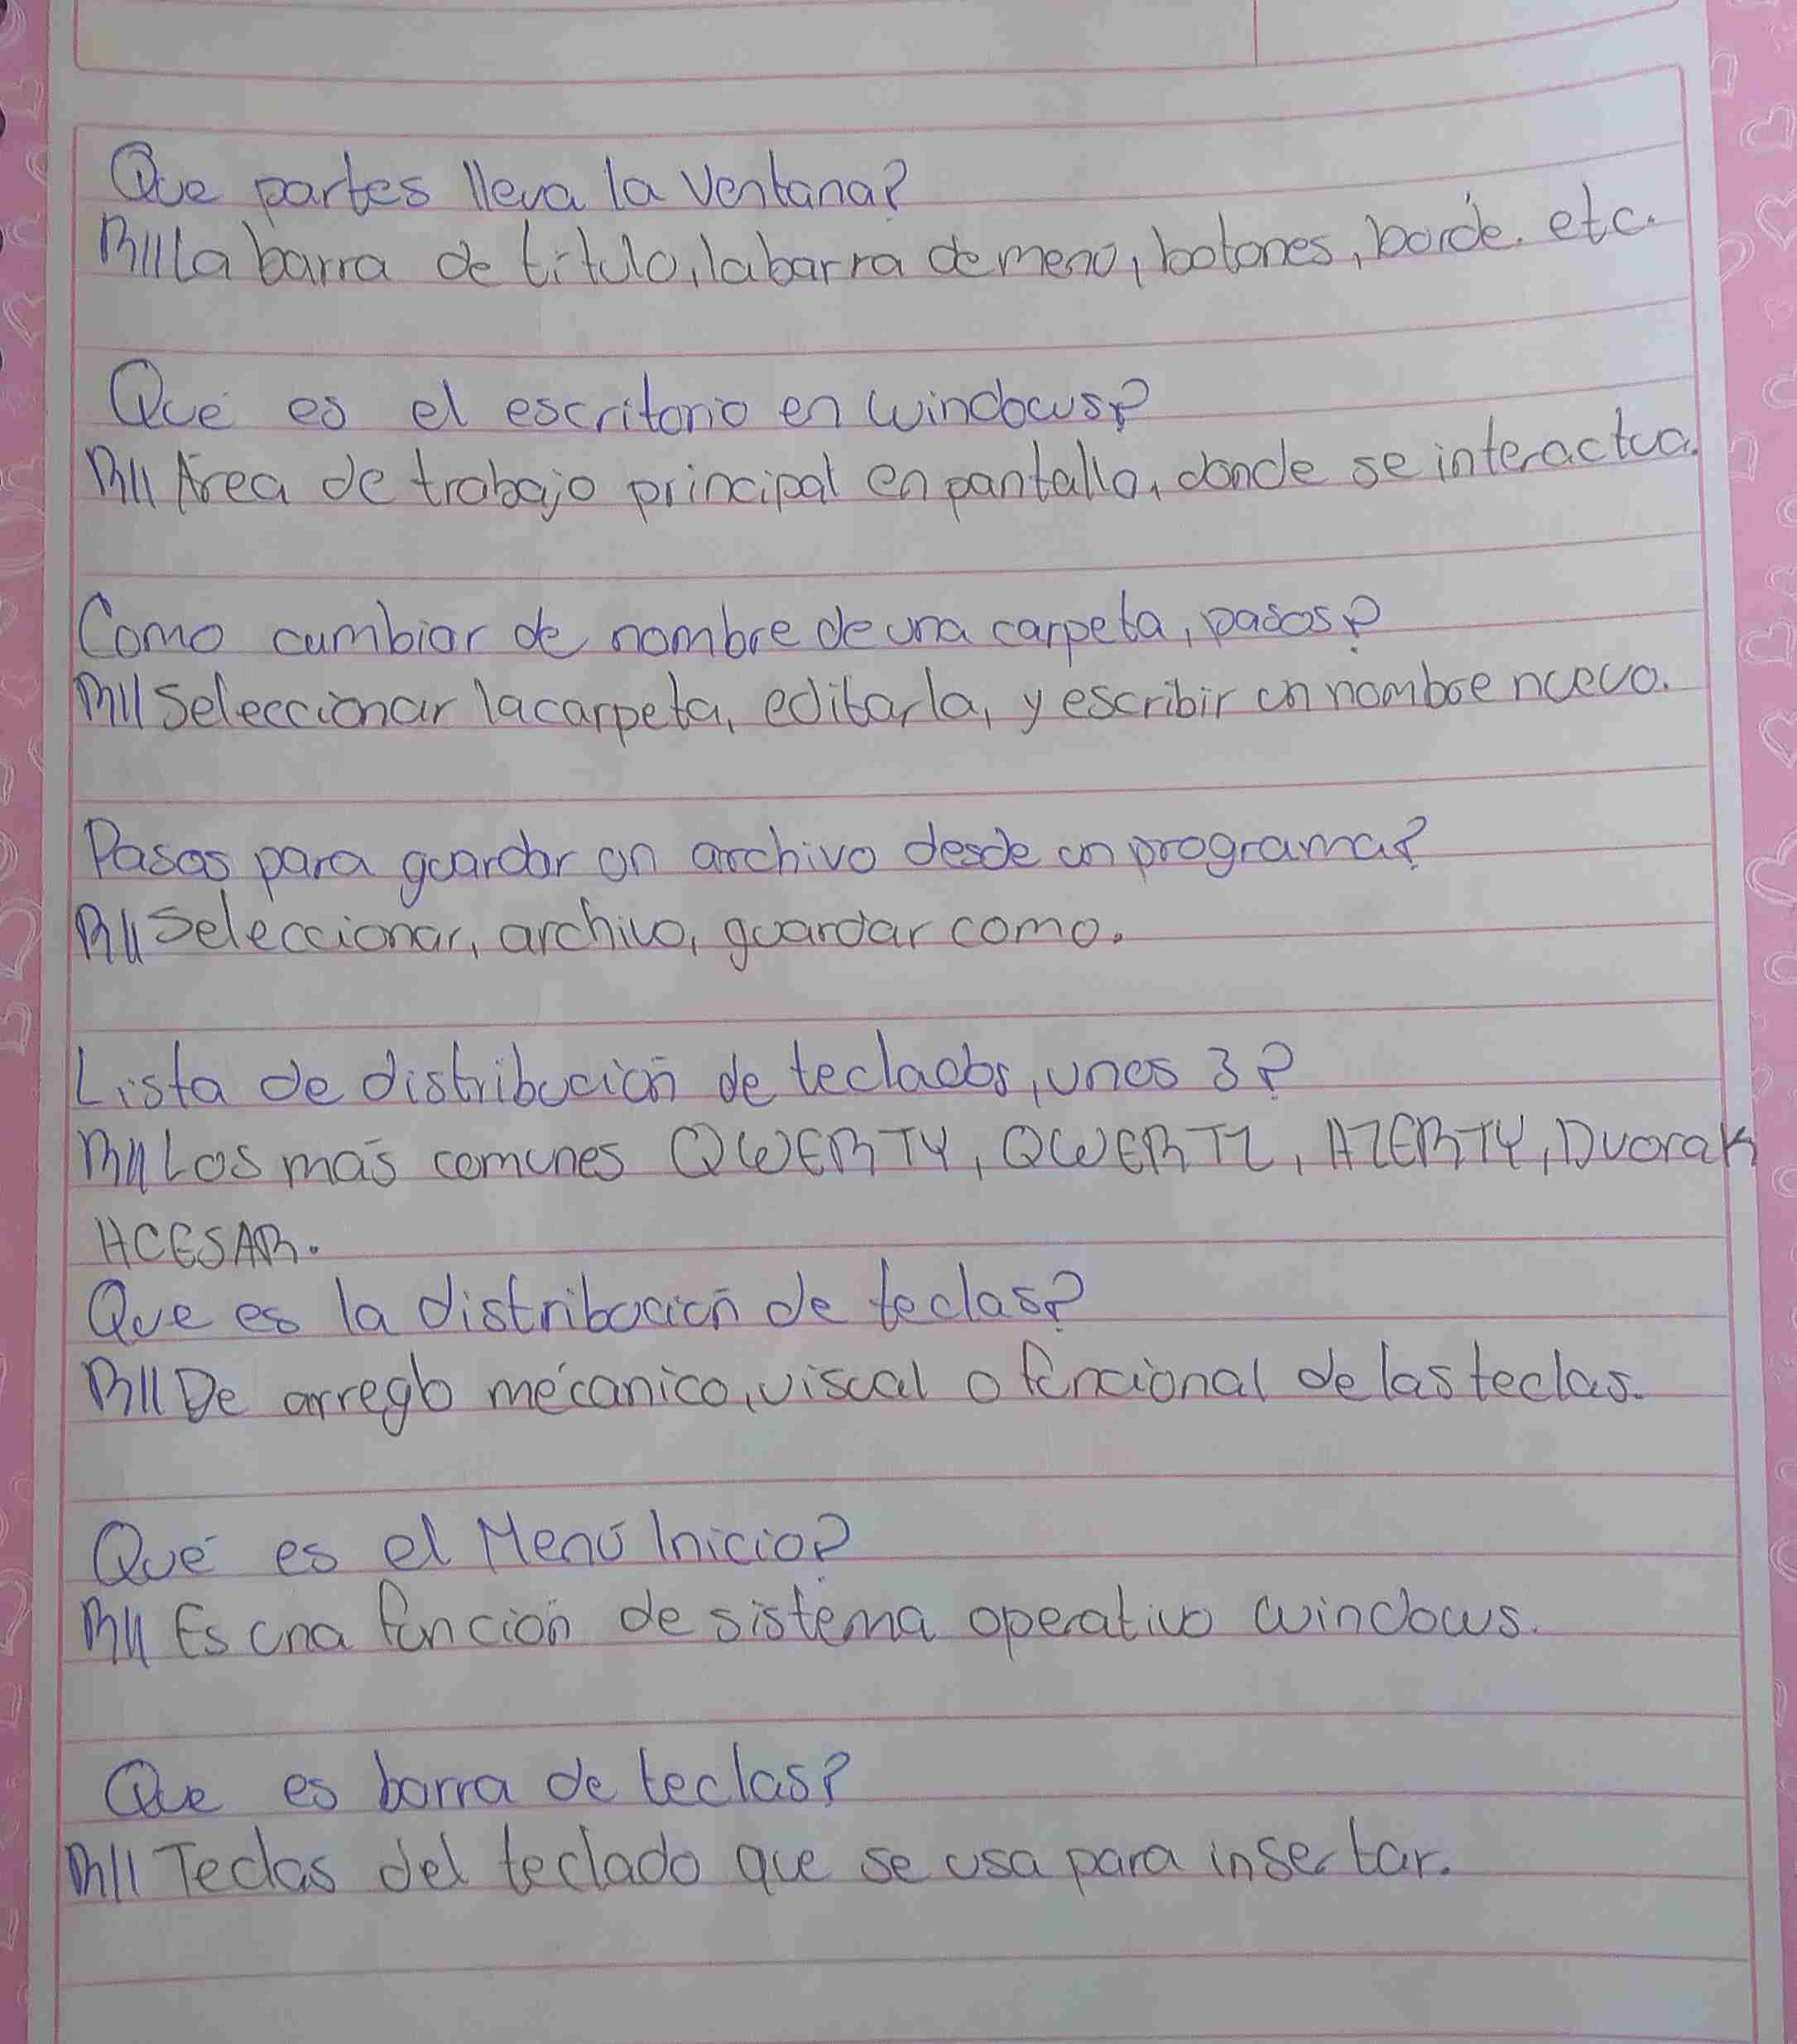 Que partes lleva la Ventana?
R// La barra de título, la barra de menú, botones, borde. etc.
Qué es el escritorio en windows?
R// Área de trabajo principal en pantalla, donde se interactua.
Como cambiar de nombre de una carpeta, pasos?
R// Seleccionar la carpeta, editarla, y escribir un nombre nuevo.
Pasos para guardar un archivo desde un programa?
R// Seleccionar, archivo, guardar como.
Lista de distribución de teclados, unos 3?
R// Los más comunes QWERTY, QWERTZ, AZERTY, Dvorak
HCESAR.
Que es la distribución de teclas?
R// De arreglo mécanico, visual o funcional de las teclas.
Qué es el Menú Inicio?
R// Es una función de sistema operativo windows.
Que es barra de teclas?
R// Teclas del teclado que se usa para insertar.